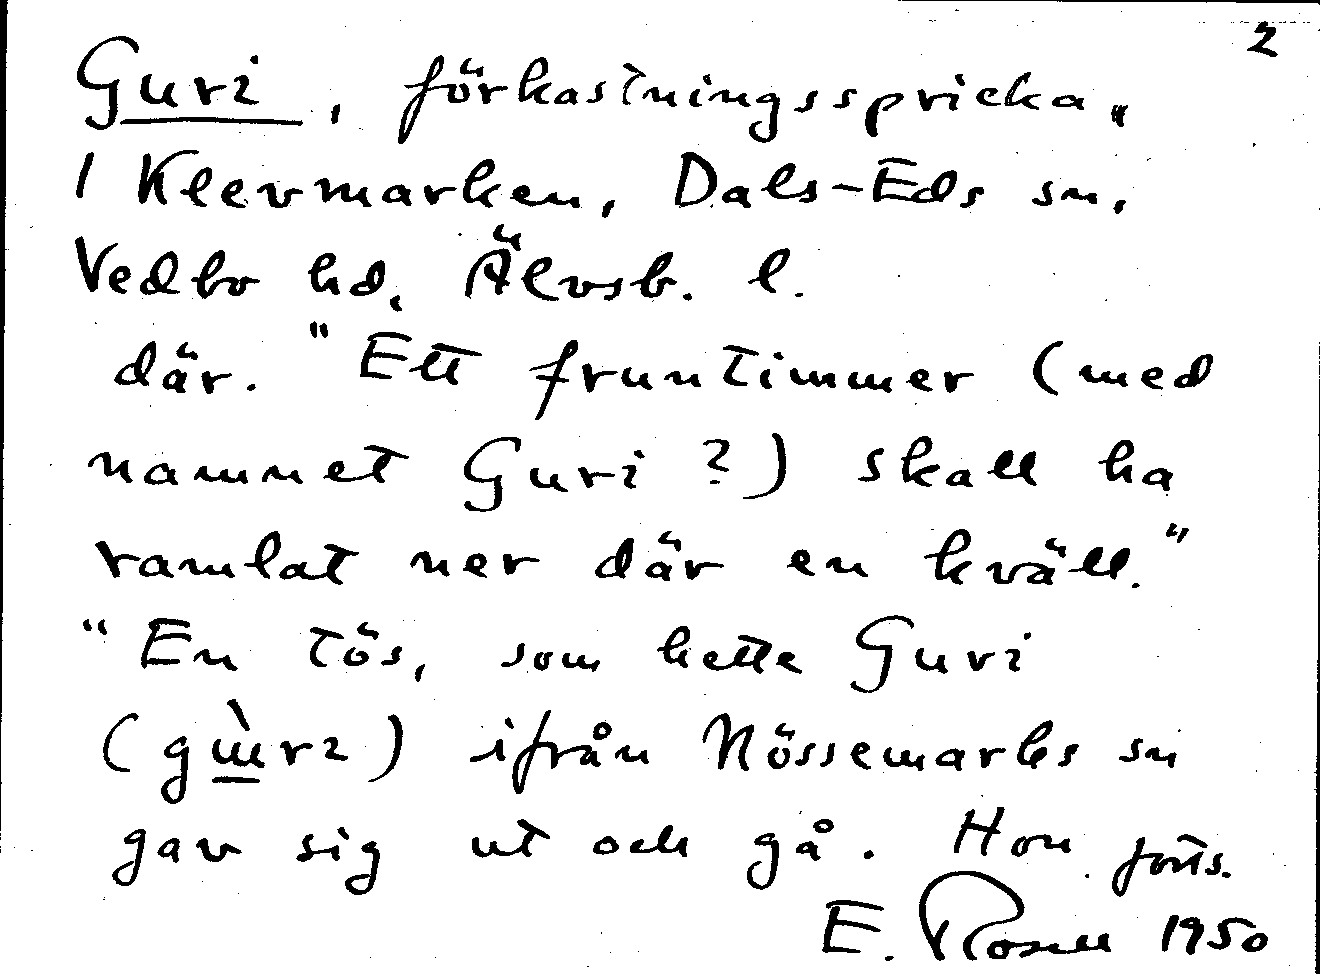 2
Guri, förkastningsspricka,
1 Klevmarken, Dals-Eds sn,
Vedbo hd, Älvsb. l.
där. "Ett fruntimmer (med
namnet Guri ?) skall ha
ramlat ner där en kväll."
"En tös, som hette Guri
ifrån Nössemarks sn
gav sig ut och gå. Hon forts.
E. Rosell 1950